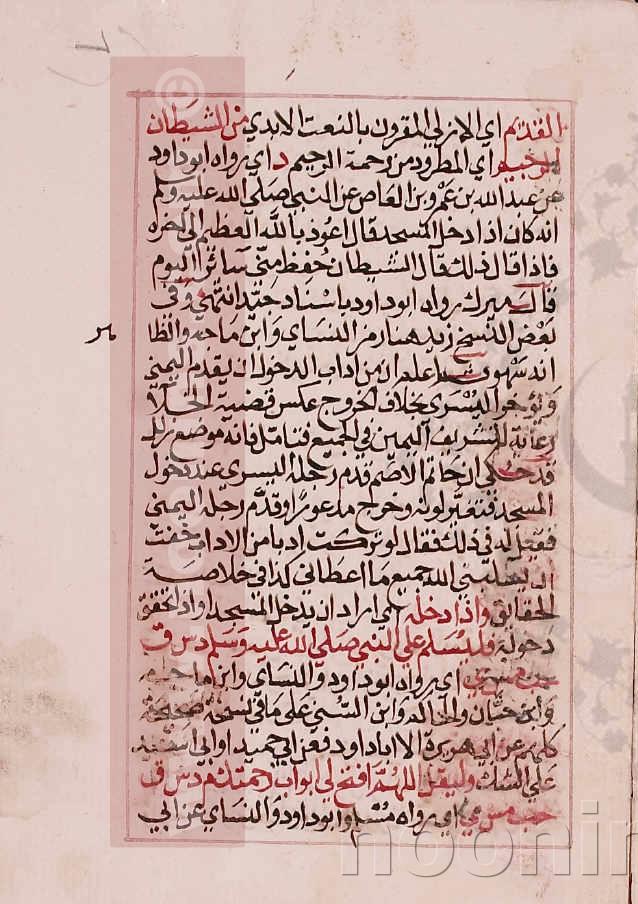 القديم اي الازلي المقرون بالنعت الابدي من الشيطان
الرجيم اي المطرود من رحمة الرحيم د اي رواه ابو داود
عن عبد الله بن عمرو بن العاص عن النبي صلي الله عليه وسلم
انه كان اذا دخل المسجد قال اعوذ بالله العظيم الى اخره
فاذا قال ذلك قال الشيطان حفظ مني سائر اليوم
قال ميرك رواه ابو داود باسناد جيد انتهي وفي
بعض النسخ زيد هنا رمز النساي وابن ماجه والظا
انه سهو اعلم ان من اداب الدخول ان يقدم اليمني
ويؤخر اليسري بخلاف الخروج عكس قضية الخلا
رعاية لتشريف اليمين في الجميع فتامل فانه موضع زلل
فقد حكي ان حاتم الاصم قدم رجله اليسري عند دخول
المسجد فتغير لونه وخرج مدعورا وقدم رجله اليمني
فقيل له في ذلك فقال لو تركت ادبا من الاداب خفت
ان يسلبني الله جميع ما اعطاني كذا في خلاصة
الحقائق واذا دخله اي اراد ان يدخل المسجد او اذا تحقق
دخوله فليسلم علي النبي صلي الله عليه وسلم د س ق
حب اي رواه ابو داود والنساي وابن ماجه
وابن حبان والحاكم وابن السني علي ما في نسخة صحيحة
كلهم عن ابي هريرة الا ابا داود فعن ابي حميد او ابي اسيد
علي الشك وليقل اللهم افتح لي ابواب رحمتك م د س ق
حب مس ي اي رواه مسلم وابو داود والنساي عن ابي
noonir